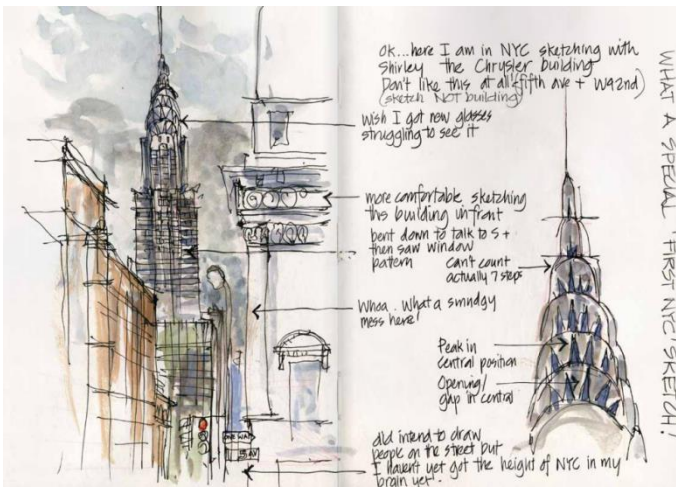 ok...here I am in NYC sketching with
Shirley the Chrysler building
Don't like this at all (fifth ave + W42nd)
(sketch NOT building)
wish I got new glasses
struggling to see it
more comfortable sketching
this building in front
bent down to talk to S +
then saw window
patern
can't count
actually 7 steps
Whoa. What a smudgy
mess here!
Peak in
central position
Opening/
gap in central
did intend to draw
people on the street but
I haven't yet got the height of NYC in my
brain yet!
WHAT A SPECIAL FIRST NYC SKETCH!
ONE WAY